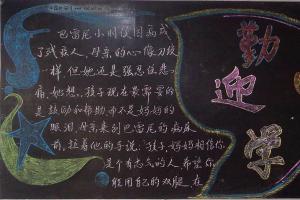 巴雷尼小时候因病成
了残疾人，母亲的心像刀绞
一样，但她还是强忍住悲
痛。她想，孩子现在最需要的
是鼓励和帮助，而不是妈妈的
眼泪。母亲来到巴雷尼的病床
前，拉着他的手说：“孩子，妈妈相信你
是个有志气的人，希望你
能用自己的双腿，在
勤
迎
学